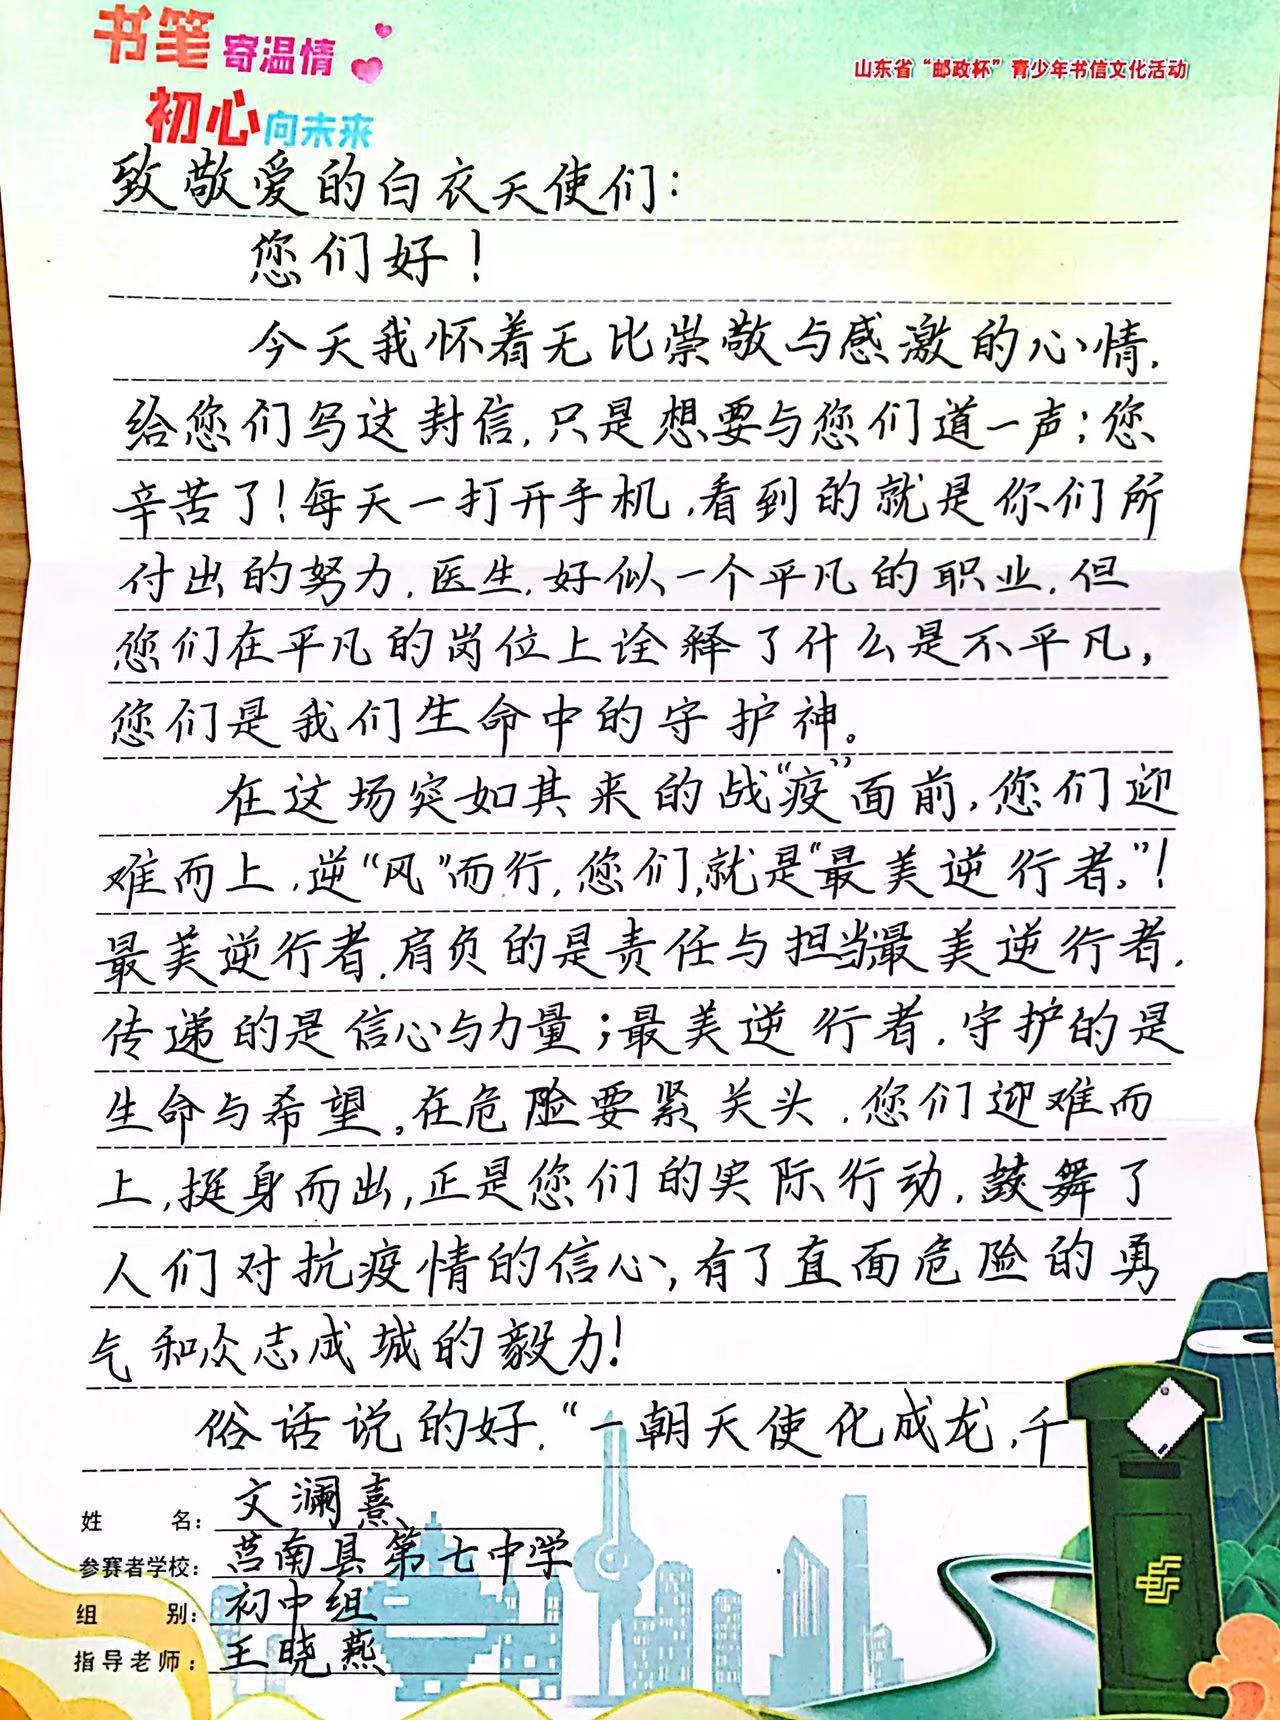 书笔寄温情
初心向未来
山东省“邮政杯”青少年书信文化活动
致敬爱的白衣天使们：
您们好！
今天我怀着无比崇敬与感激的心情，
给您们写这封信，只是想要与您们道一声：您
辛苦了！每天一打开手机，看到的就是你们所
付出的努力，医生，好似一个平凡的职业，但
您们在平凡的岗位上诠释了什么是不平凡，
您们是我们生命中的守护神。
在这场突如其来的战“疫”面前，您们迎
难而上，逆“风”而行，您们，就是“最美逆行者。”！
最美逆行者，肩负的是责任与担当最美逆行者，
传递的是信心与力量；最美逆行者，守护的是
生命与希望。在危险要紧关头，您们迎难而
上，挺身而出，正是您们的实际行动，鼓舞了
人们对抗疫情的信心，有了直面危险的勇
气和众志成城的毅力！
俗话说的好，“一朝天使化成龙，千
姓名：文澜熹
参赛者学校：莒南县第七中学
组别：初中组
指导老师：王晓燕